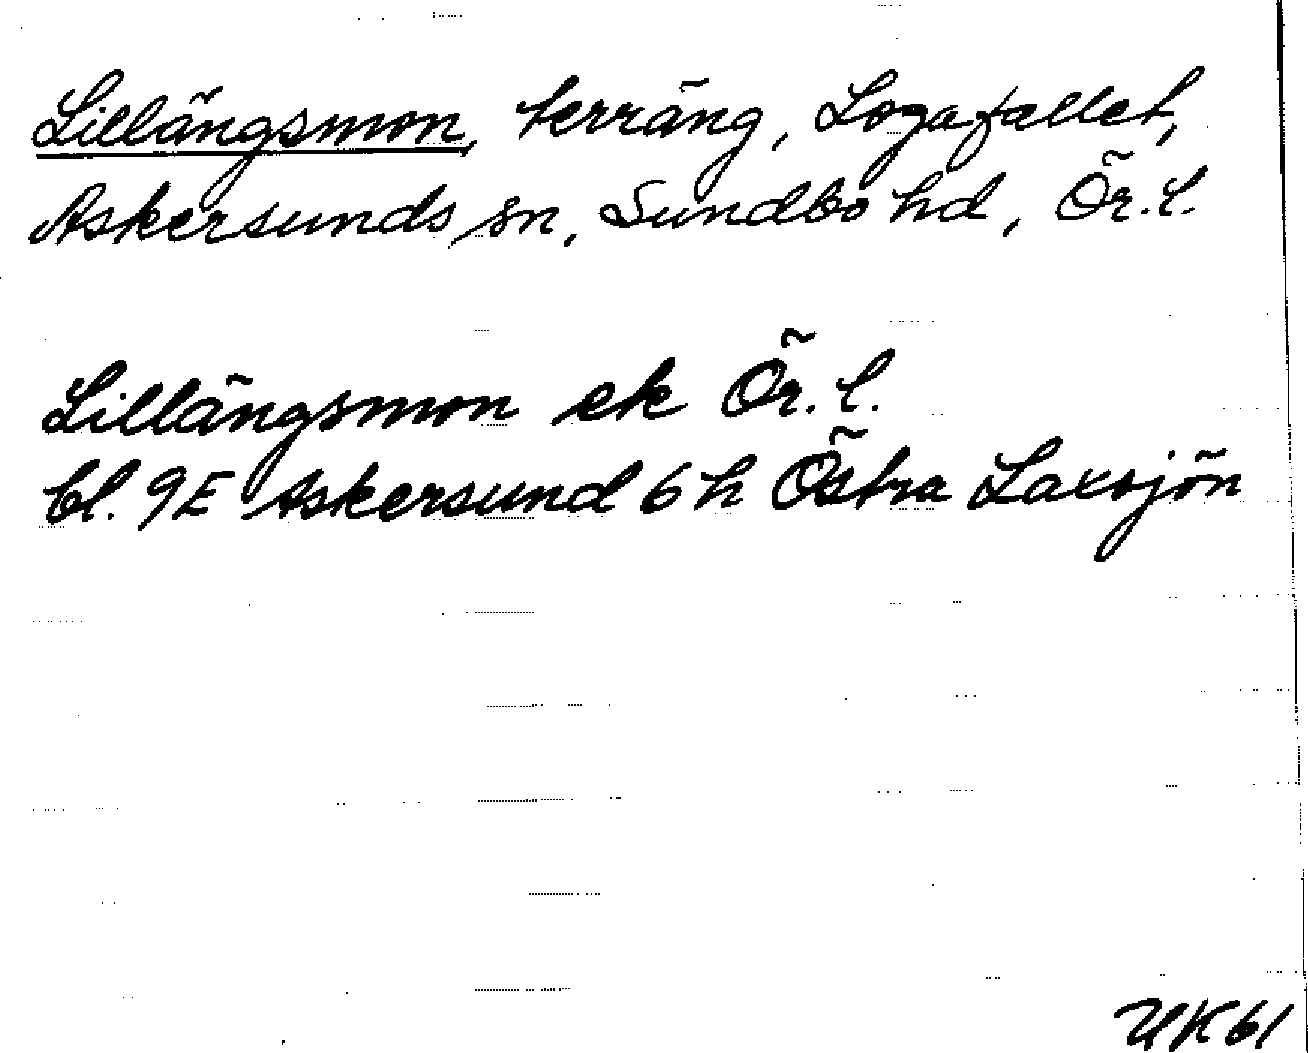 Lillängsmon, terräng, Logafallet,
Askersunds sn, Sundbo hd, Ör. l.
Lillängsmon ek Ör. l.
bl. 9E Askersund 6h Östra Laxsjön
UK61